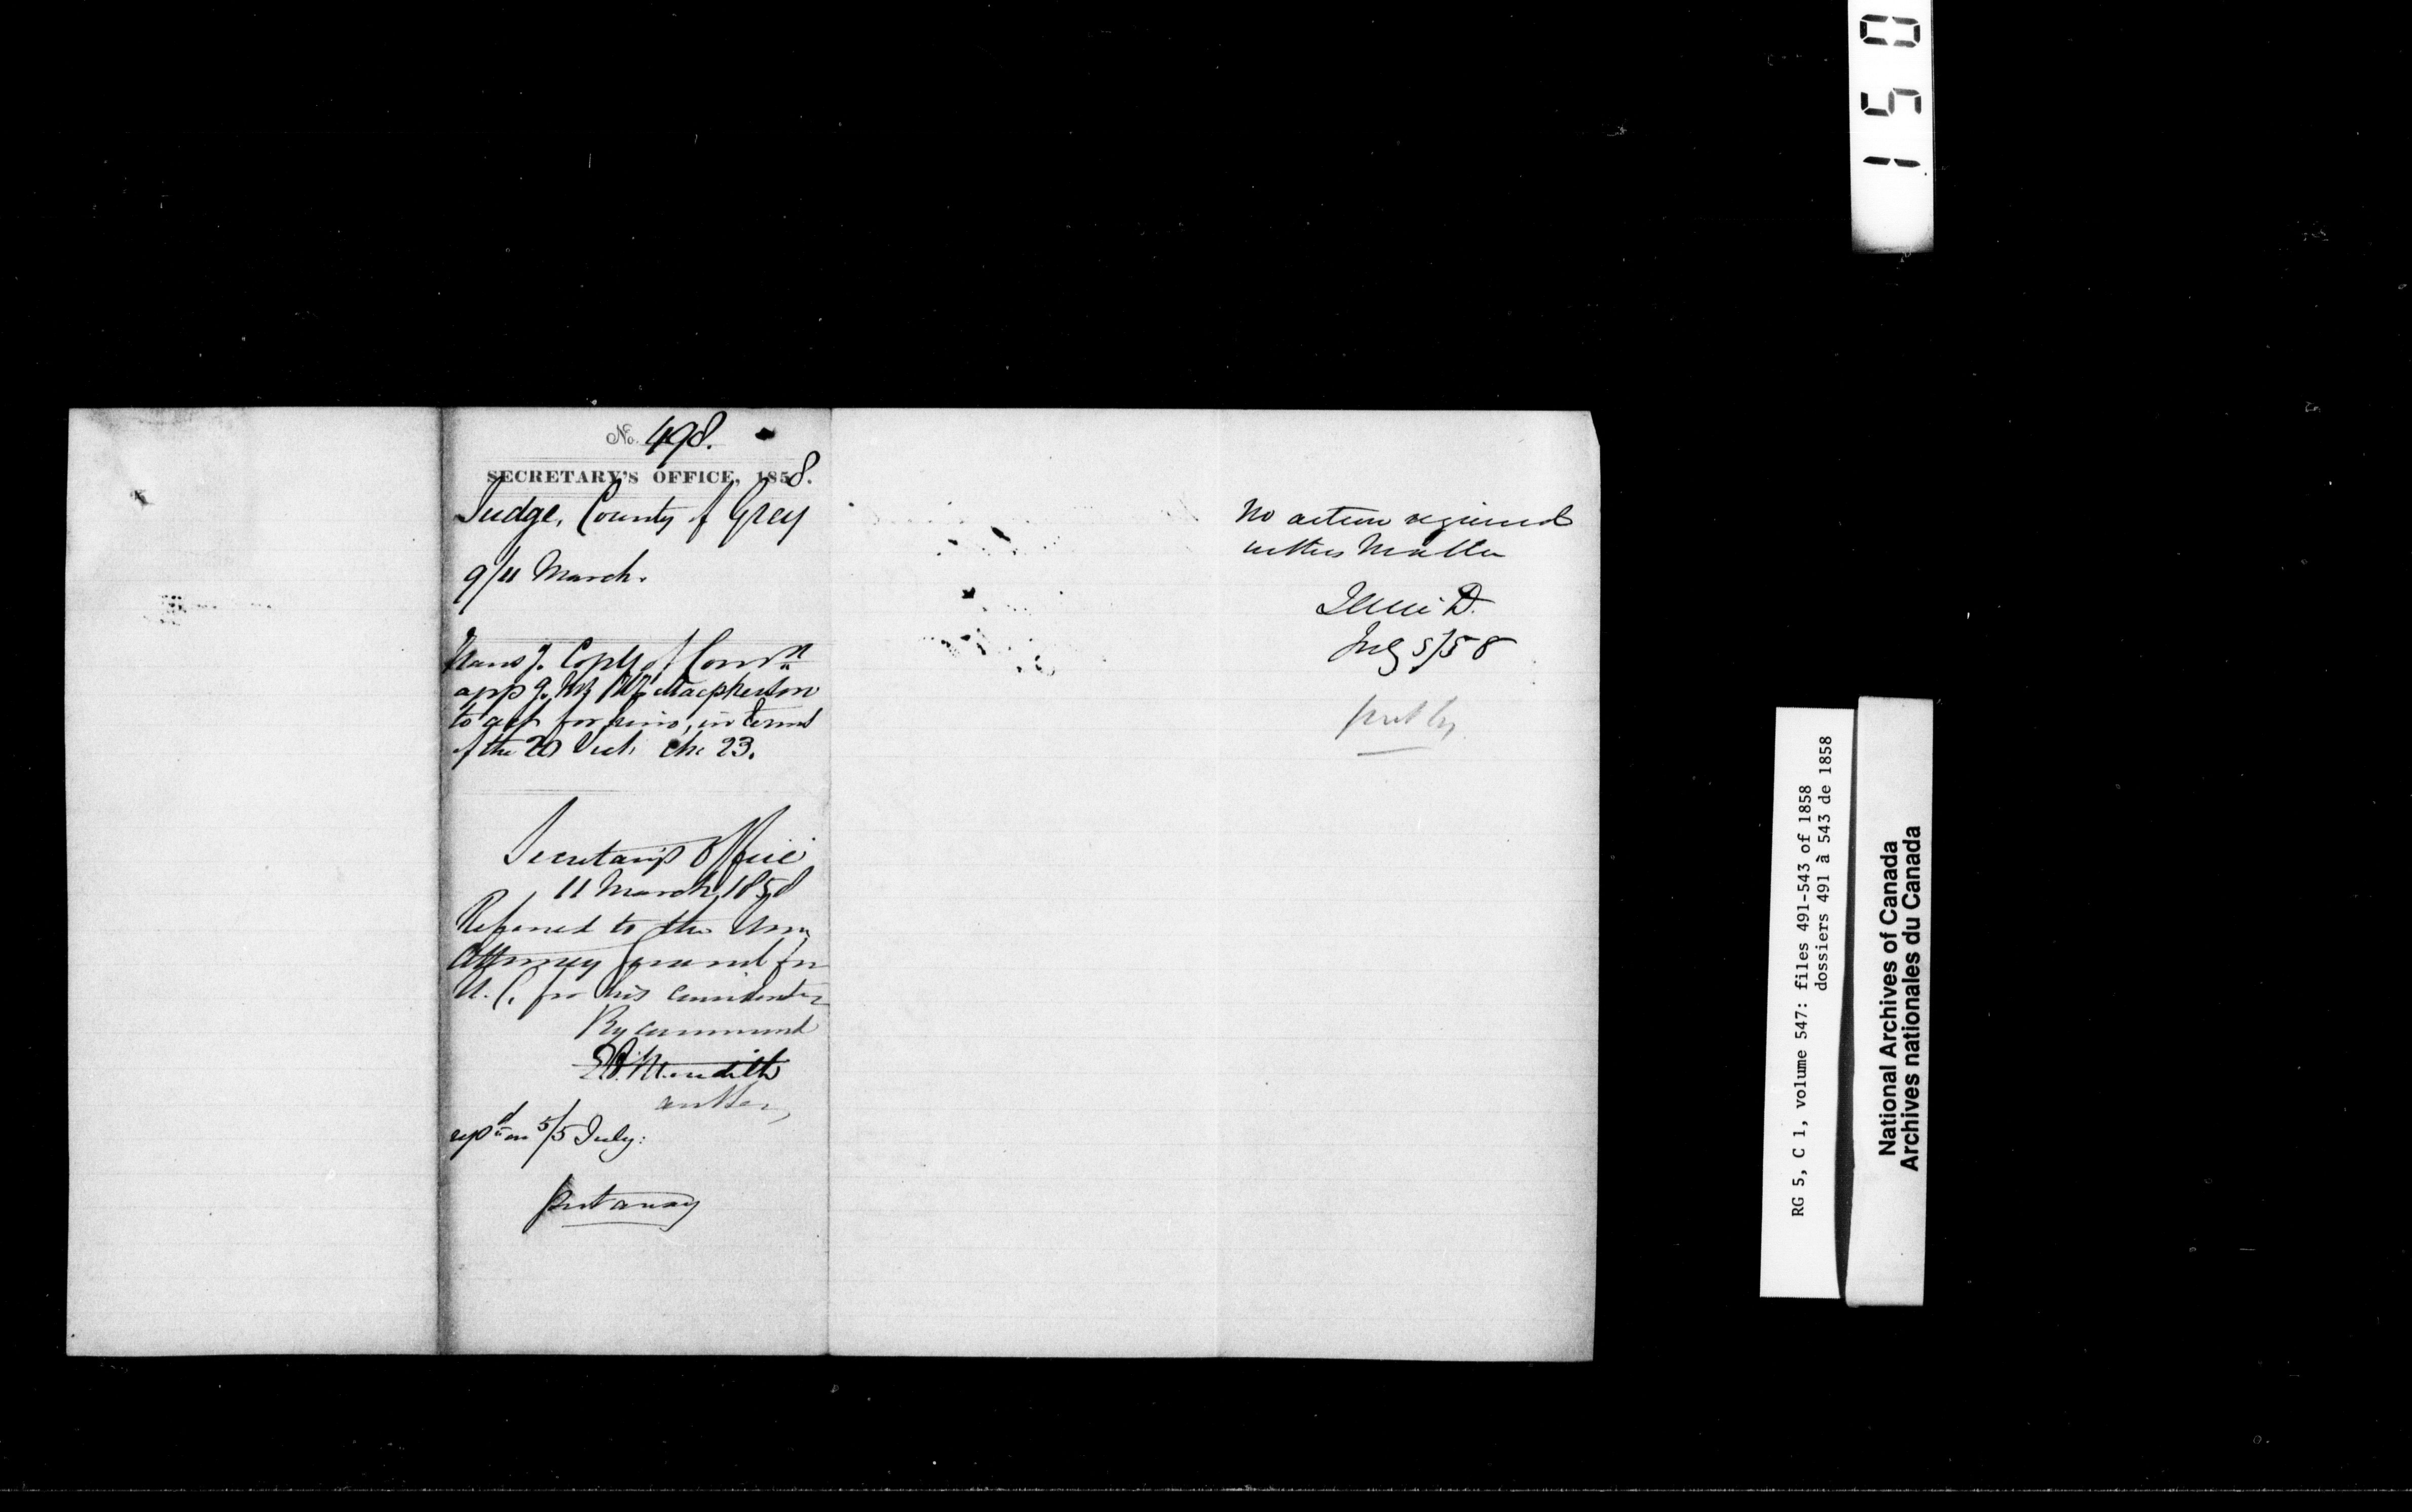 No. 498.
SECRETARY'S OFFICE, 1858.
Judge, County of Grey
9/11 March.
Transg. Copy of Comn
appg. Mr Macpherson
to act for him, in terms
of the 20 Vict. Ch. 23.
Secretary's Office
11 March, 1858
Referred to the Hon.
Attorney General for
U. C. for his consideration
By command
E. A. Meredith
repd on 5/5 July:
put away
No action required
in this Matter
July 5/58
put by
150
RG 5, C 1, volume 547: files 491-543 of 1858
dossiers 491 à 543 de 1858
National Archives of Canada
Archives nationales du Canada